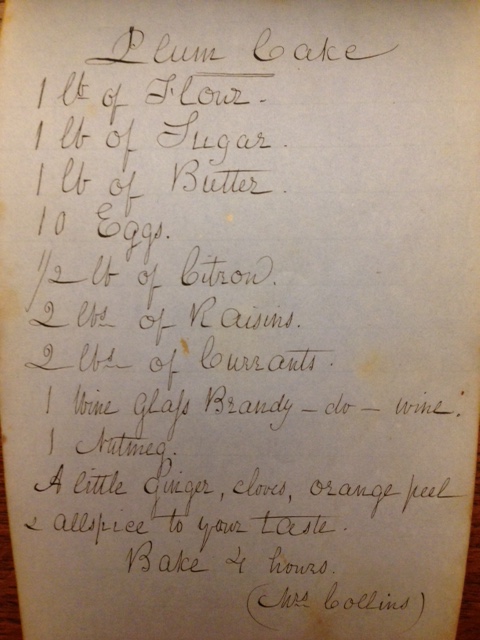 Plum Cake
1 lb of Flour.
1 lb of Sugar.
1 lb of Butter.
10 Eggs.
1/2 lb of Citron.
2 lbs of Raisins.
2 lbs of Currants.
1 Wine Glaſs Brandy – do – wine.
1 Nutmeg.
A little Ginger, cloves, orange peel
& allspice to your taste.
Bake 4 hours.
(Mrs Collins)